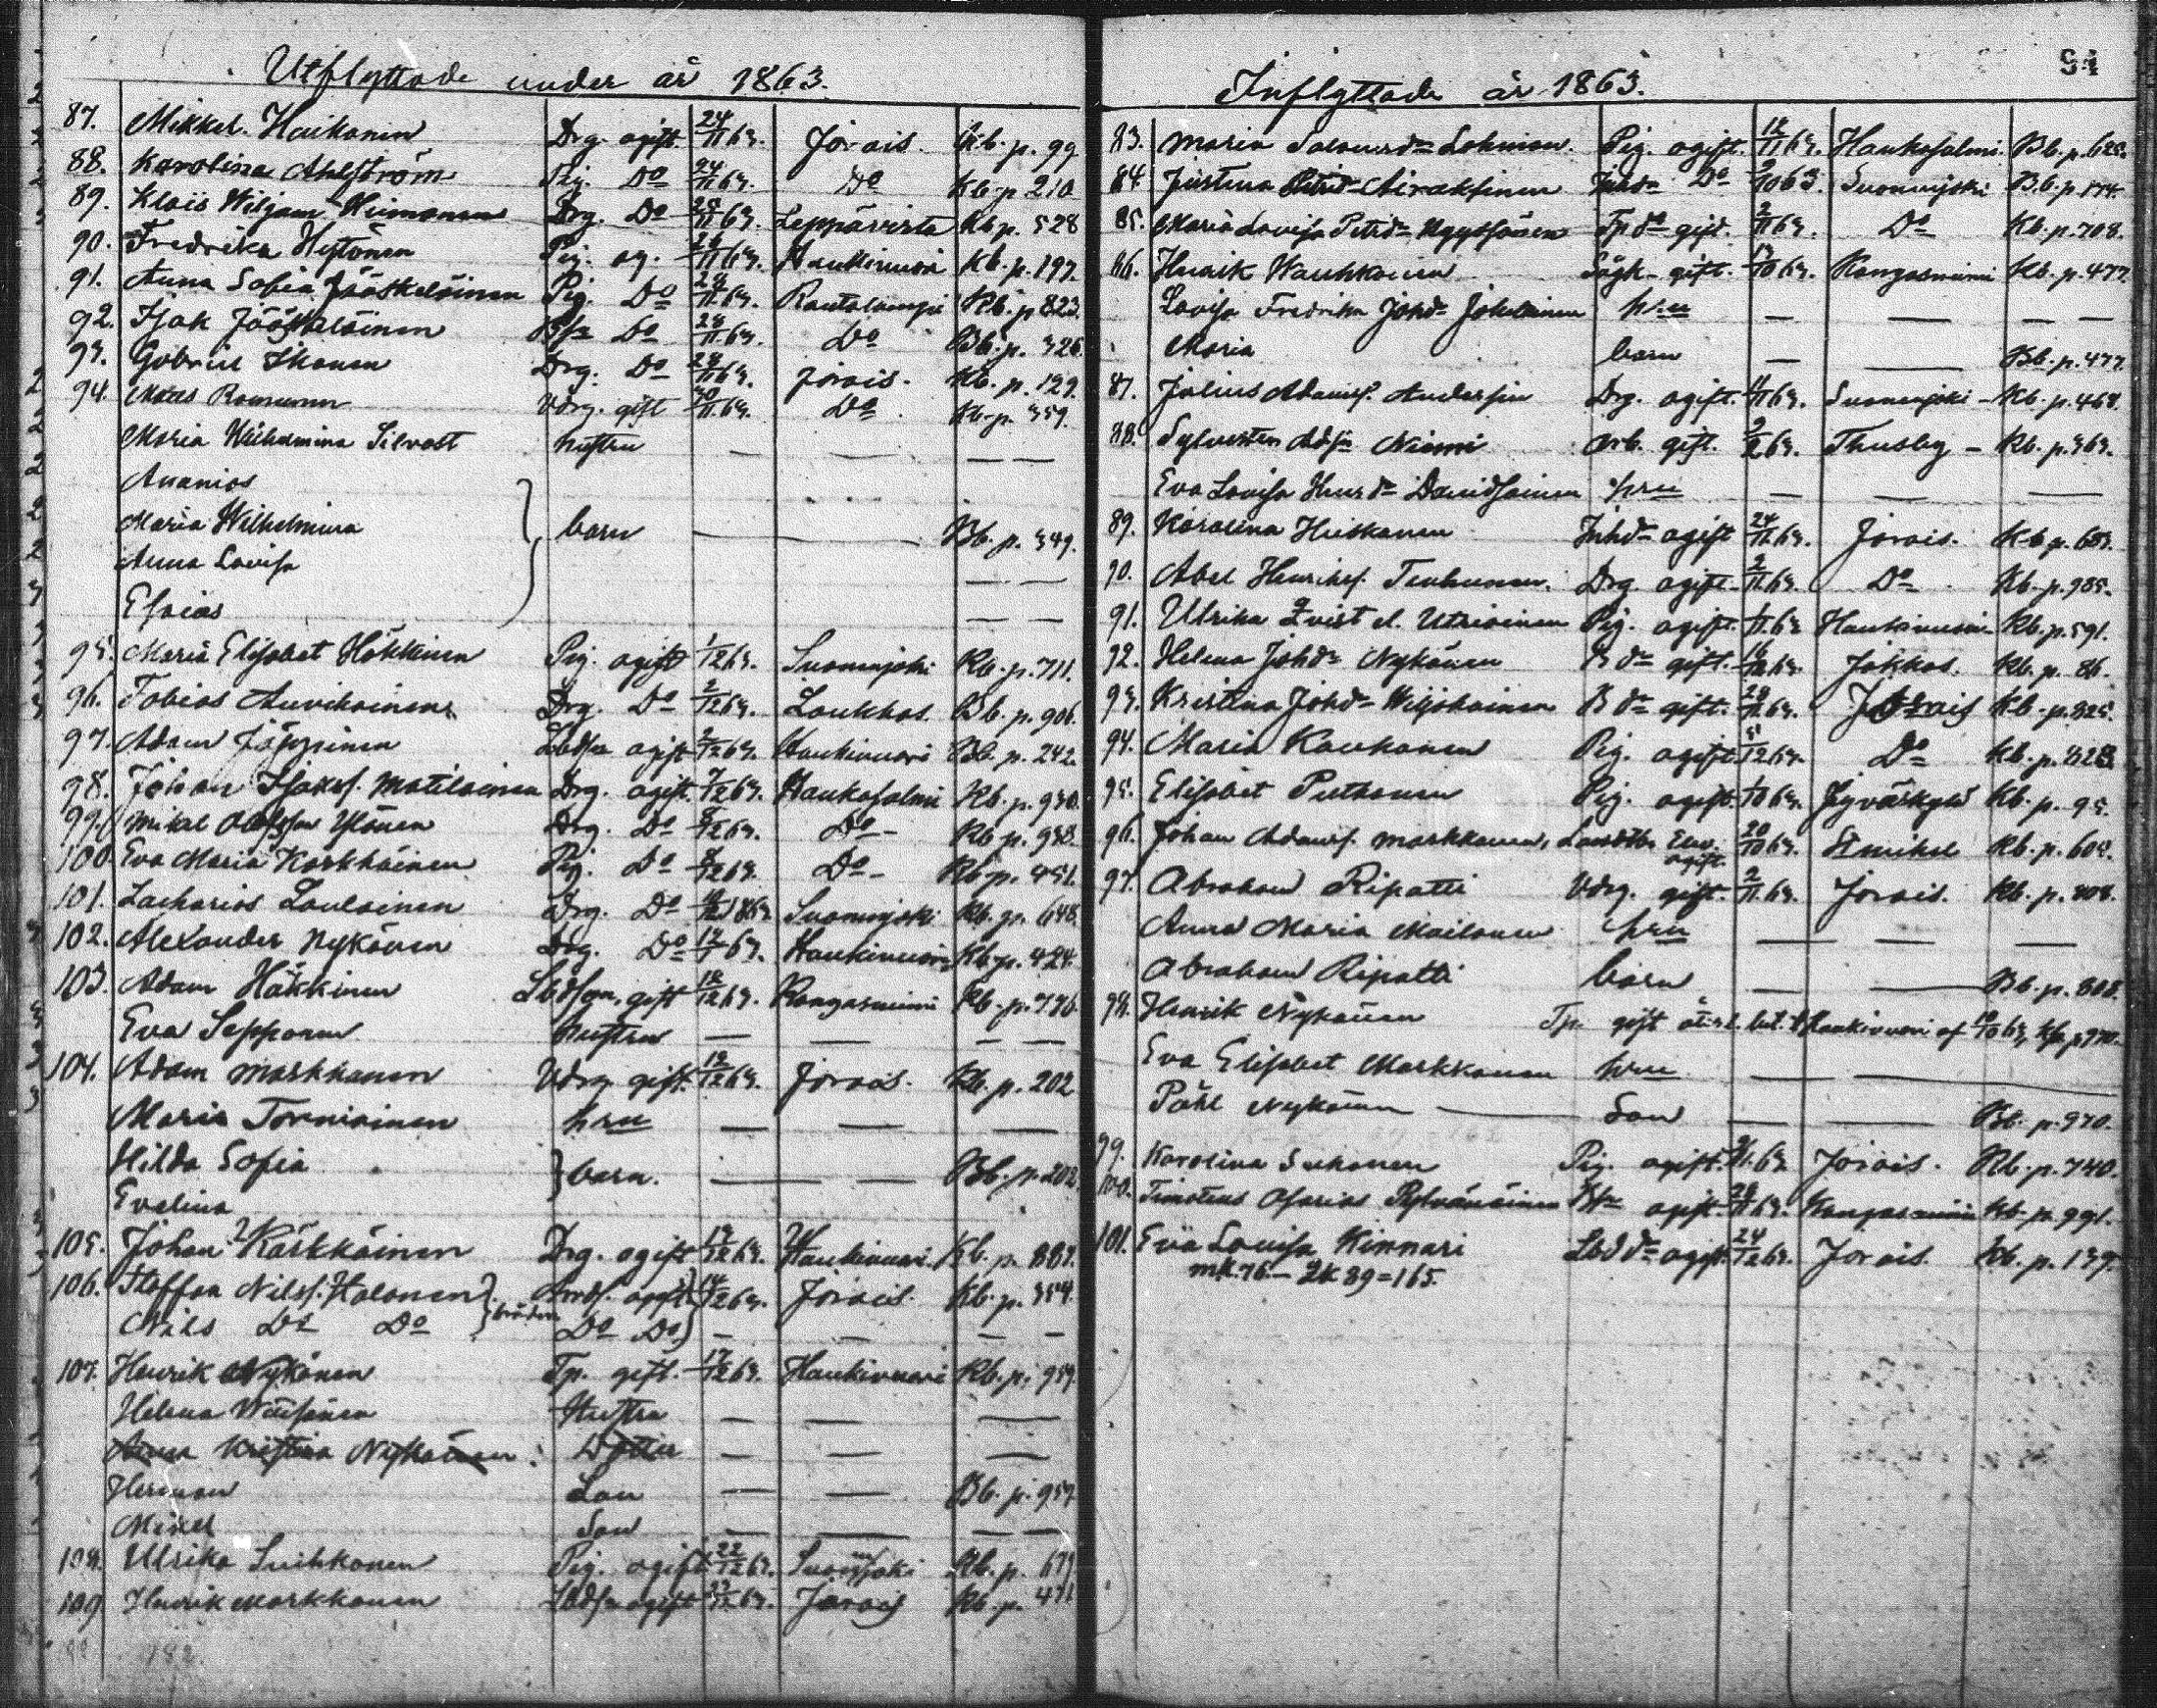 Utflyttade under år 1863.
87. Mikkel Haikonen Drg. ogift. 24/11 63. Jorois. Kb. p. 99
88. Karolina Ahlström Pig. Do 24/11 63. Do Kb. p. 210
89. Klais Wiljam Heimonen Drg. Do 28/11 63. Leppävirta Kb. p. 528
90. Fredrika Hytönen Pig. og. 11 63. Haukivuori Kb. p. 197.
91. Anna Sofia Jääskeläinen Pig. Do 28/11 63. Rautalampi Kb. p. 823.
92. Isak Jääskeläinen Do 28/11 63. Do Bb. p. 326
93. Gabriel Ikonen Drg. Do 28/11 63. Jorois. Kb. p. 129.
94. Mats Romunen Vdrg. gift 30/11 63. Do Kb. p. 359.
Maria Wilhelmina Silvast hustru — — — —
Ananias
Maria Wilhelmina } barn — — Bb. p. 349.
Anna Lovisa — —
Esaias — —
95. Maria Elisabet Häkkinen Pig. ogift 1/12 63. Suonenjoki Kb. p. 711.
96. Tobias Auvikainen Drg. Do 2/12 63. Laukkas. Bb. p. 906.
97. Adam Jäppinen ogift 2/12 63. Haukivuori Bb. p. 242.
98. Johan Isakss. Matilainen Drg. ogift. 7/12 63. Hankasalmi Kb. p. 930.
99. Mikel Olofsson Ylönen Drg. Do 8/12 63. Do - Kb p. 938.
100. Eva Maria Karkkäinen Pig. Do 8/12 63. Do - Kb p. 451.
101. Zacharias Laulainen Drg. Do 1863 Suonenjoki Kb. p. 648.
102. Alexander Nykänen Drg. Do 63. Haukivuori Kb. p. 424.
103. Adam Häkkinen Lbdson, gift 18/12 63. Kangasniemi Kb. p. 776.
Eva Sepponen hustru — — — —
104. Adam Markkanen Vdrg. gift. 19/12 63. Jorois. Kb. p. 202
Maria Torniainen hru — — —
Hilda Sofia } barn. — — Bb. p. 202.
Evelina
105. Johan Kärkkäinen Drg. ogift 63. Haukivuori. Kb. p. 881.
106. Staffan Nilss. Halonen } ogift } 14/12 63. Jorois. Kb. p. 354.
Nils Do Do } bröder Do Do } — — — —
107. Henrik Nykänen Tp. gift. 17/12 63. Haukivuori Kb. p. 959.
Helena Väisänen Hustru — — —
Anna Kristina Nykänen. Dotter — — —
Herman Son — — Bb. p. 959
Mikel Son — — — —
108. Ulrika Suihkonen Pig. ogift 22/12 63. Suonenjoki Kb. p. 679
109 Henrik Markkanen Lbdson ogift 63. Jorois Kb. p. 471
Inflyttade år 1863.
94
83. Maria Salomsdr Lohman. Pig. ogift. 12/11 63. Hankasalmi. Bb. p. 622.
84. Justina Petrdr Airaksinen Inhdr Do 9/10 63. Suonenjoki Bb. p. 174.
85. Maria Lovisa Petrdr Hyyssönen Tpdr gift. 2/11 63. Do Kb. p. 708.
86. Henrik Wauhkonen gift. 63. Kangasniemi Kb. p. 477.
Lovisa Fredrika Johdr hru — — — —
Maria barn — — Bb. p. 477.
87. Julius Adamss. Andersin Drg. ogift. 11/11 63. Suonenjoki - Kb. p. 468.
88. Sylvester Adsn Niemi arb. gift. 63. Thusby - Kb. p. 363.
Eva Lovisa Henrdr Davidsainen hru — — —
89. Karolina Huiskonen Inhdr ogift 24/11 63. Jorois. Kb p. 683.
90. Abel Henrikss. Tenhunen. Drg. ogift. 2/11 63. Do Kb. p. 985.
91. Ulrika Qvist el. Utriainen Pig. ogift. 63 Haukivuori Kb. p. 591.
92. Helena Johdr Nykänen Bdr gift. 63. Jokkas. Kb. p. 86.
93. Kristina Johdr Wiljakainen Bdr gift. 28/11 63. Jorois Kb. p. 825.
94. Maria Kaukonen Pig. ogift. 12 63. Do Kb. p. 828
95. Elisabet Puttonen Pig. ogift. 1/10 63. Jyväskylä Kb. p. 95.
96. Johan Adamss. Markkanen, ogift. 20/10 63. St Mikel Kb. p. 602.
97. Abraham Ripatti Vdrg. gift. 2/11 63. Jorois. Kb. p. 808.
Anna Maria Mailanen hru — — —
Abraham Ripatti barn — — Bb. p. 808.
98. Henrik Nykänen Tp. gift Haukivuori af 10/10 63, Kb. p. 970.
Eva Elisabet Markkanen hru — —
Påhl Nykänen — Son — — Bb. p. 970.
99. Karolina Pig. ogift. 63 Jorois. Kb. p. 740.
100. Timoteus Asarias Pylvänäinen ogift. 28/11 63. Kangasniemi Kb. p. 991.
101. Eva Lovisa Kinnari Lbddr ogift. 24/12 63. Jorois. Kb. p. 139.
mk. 76 - qk 89 = 165.